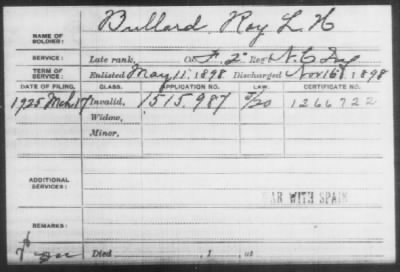 NAME OF SOLDIER: Bullard, Roy L. H
SERVICE: Late rank, Co. F. 2" Reg't N.C. Inf
TERM OF SERVICE: Enlisted May 11, 1898 Discharged Nov 18, 1898
DATE OF FILING. CLASS. APPLICATION NO. LAW. CERTIFICATE NO.
1925 Mch 17 Invalid, 1515.987 5/20 1266722
Widow,
Minor,
ADDITIONAL SERVICES:
WAR WITH SPAIN
REMARKS:
Died , 1 , at